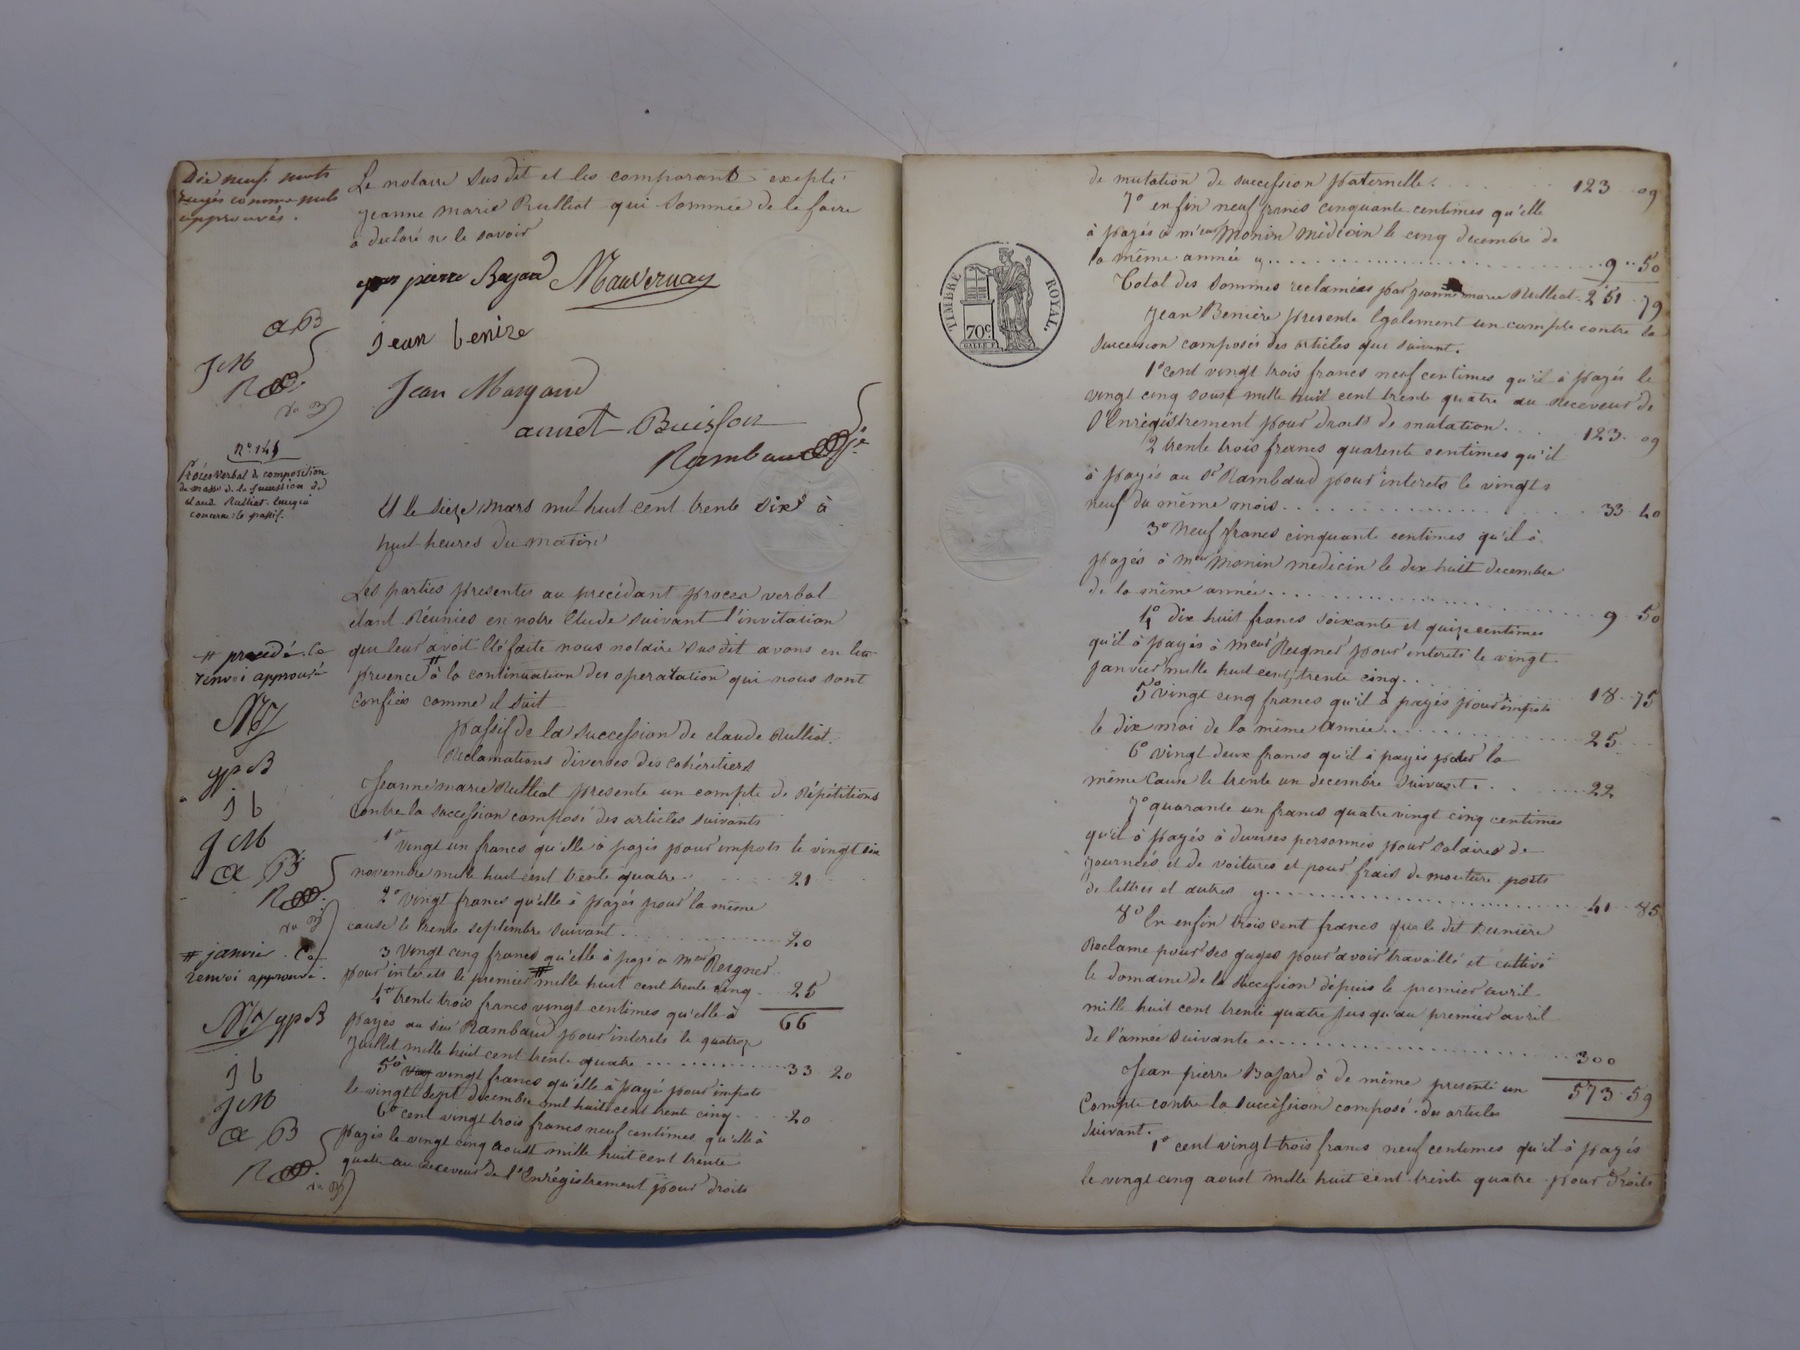 Dix neuf mots
rayés comme nuls
approuvés.
Le notaire susdit et les comparants excepté
Jeanne marie Rulliat qui sommée de le faire
a déclaré ne le savoir
pierre Bajard Mauvernay
jean beniere
Jean Margand
annet Buisson
Rambaud
a B
J M
R
N° 145
Procès verbal de composition
de masse de la succession de
claud Rulliat en ce qui
concerne le passif.
Et le seize mars mil huit cent trente six à
huit heures du matin
Les parties presentes au précédant proces verbal
étant réunies en notre Etude suivant l'invitation
qui leur avoit été faite nous notaire susdit avons en leur
presence # à la continuation des operatation qui nous sont
confiés comme il suit
# procédé. Ce
renvoi approuvé
gp B
j b
J M
a B
R
passif de la succession de claude Rulliat.
Réclamations diverses des cohéritiers
Jeanne marie Rulliat presente un compte de répétitions
contre la succession composé des articles suivants
1° vingt un francs qu'elle à payés pour impots le vingt six
novembre mille huit cent trente quatre . . . 21
2° vingt francs qu'elle à payés pour la même
cause le trente septembre suivant . . . 20
3 vingt cinq francs qu'elle à payé a meur Reignier
pour interets le premier # mille huit cent trente cinq . . 25
66
# janvier. Ce
renvoi approuvé.
gp B
j b
J M
a B
R
4° trente trois francs vingt centimes qu'elle à
payés au sieur Rambaud pour interets le quatorze
Juillet mille huit cent trente quatre . . . 33 20
5° vingt francs qu'elle à payé pour impots
le vingt sept decembre mil huit cent trente cinq . . . 20
6° cent vingt trois francs neuf centimes qu'elle à
payés le vingt cinq aoust mille huit cent trente
quatre au receveur de l'Enrégistrement pour droits
TIMBRE ROYAL.
70c
de mutation de succession paternelle . . . 123 09
7° enfin neuf francs cinquante centimes qu'elle
à payés à meur Monin médecin le cinq decembre de
la même année . . . 9 50
Total des sommes réclamées par jeanne marie Rulliat. 251 79
Jean Beniere presente également un compte contre la
succession composés des articles qui suivent.
1° cent vingt trois francs neuf centimes qu'il à payés le
vingt cinq aoust mille huit cent trente quatre au receveur de
l'Enregistrement pour droits de mutation . . . 123. 09
2 trente trois francs quarente centimes qu'il
à payés au Sr Rambaud pour interets le vingt
neuf du même mois . . . 33 40
3° Neuf francs cinquante centimes qu'il à
payés à meur Monin médecin le dix huit decembre
de la même année . . . 9 50
4° dix huit francs soixante et quinze centimes
qu'il à payés à meur Reignier pour interets le vingt
janvier mille huit cent trente cinq . . . 18. 75
5° vingt cinq francs qu'il à payés pour impots
le dix mai de la même année . . . 25
6° vingt deux francs qu'il à payés pour la
même cause le trente un decembre suivant . . . 22
7° quarante un francs quatre vingt cinq centimes
qu'il à payés à diverses personnes pour salaires de
journées et de voitures et pour frais de mouture, ports
de lettres et autres . . . 41 85
8° Et enfin trois cent francs que le dit Beniere
réclame pour ses gages pour avoir travaillé et cultivé
le domaine de la succession dépuis le premier avril
mille huit cent trente quatre jusqu'au premier avril
de l'année suivante . . . 300
573. 59
Jean pierre Bajard à de même presenté un
compte contre la succession composé des articles
suivant.
1° cent vingt trois francs neuf centimes qu'il à payés
le vingt cinq aoust mille huit cent trente quatre pour droits